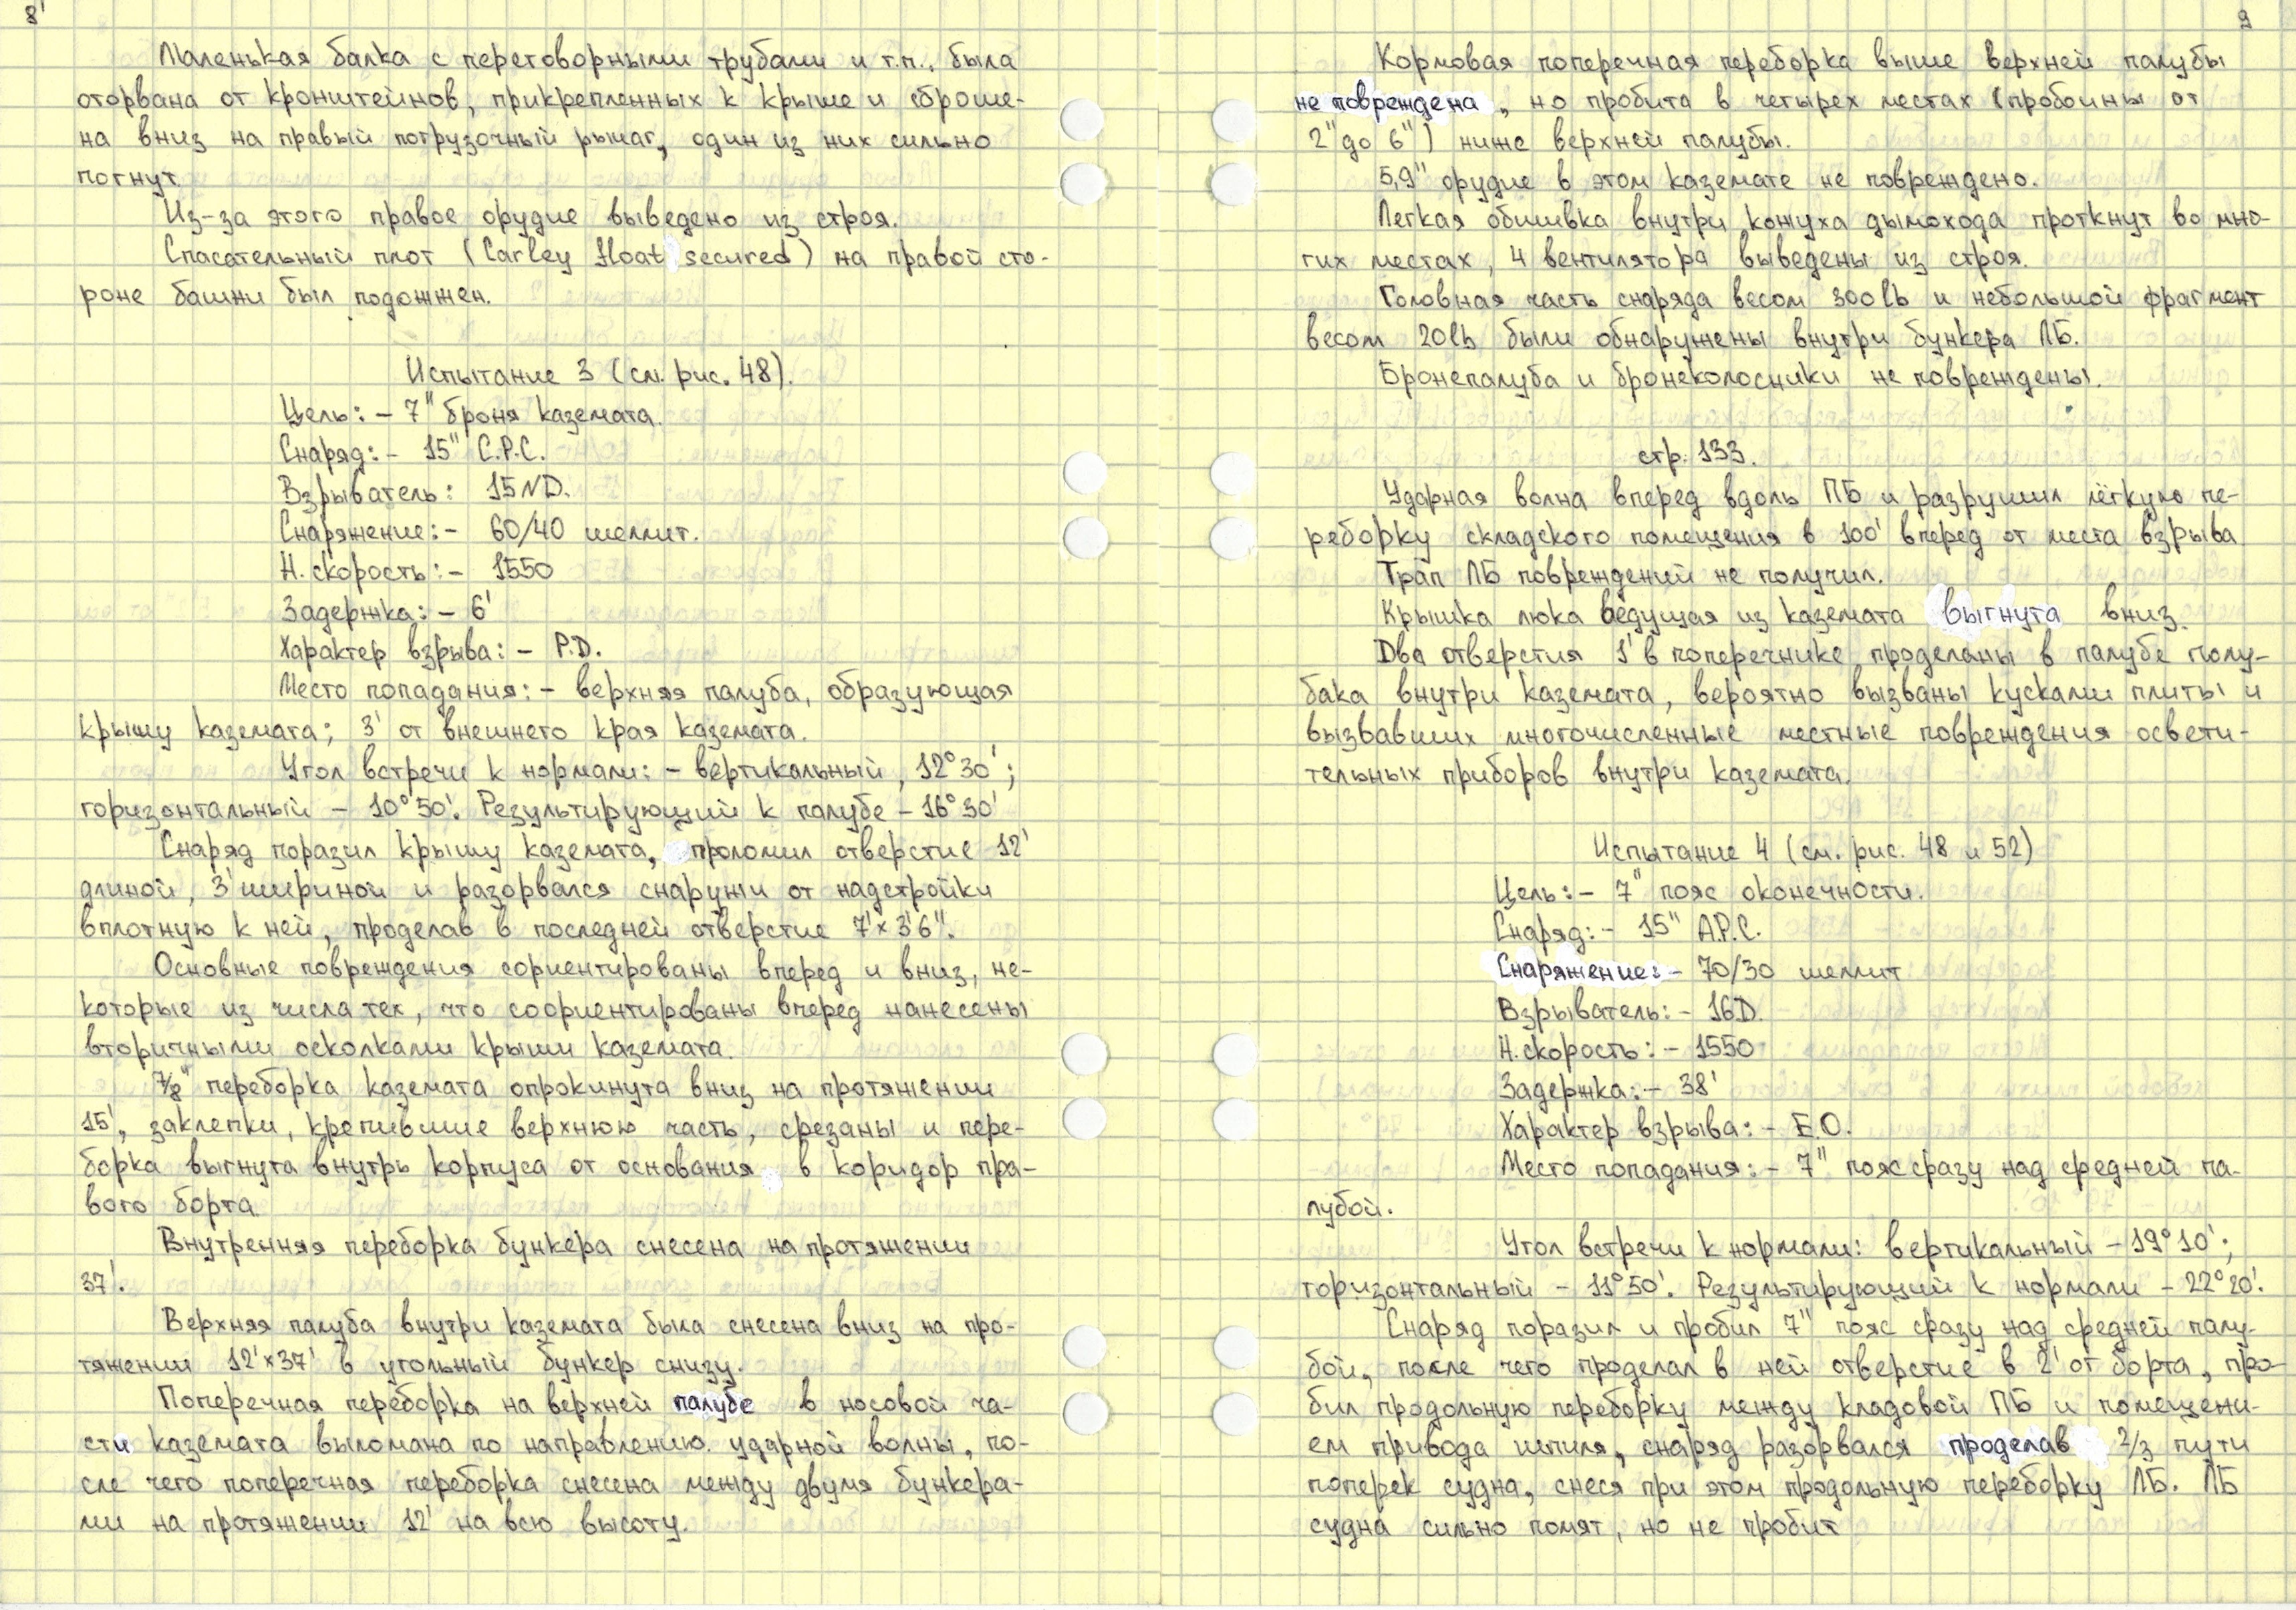 8'
Маленькая балка с переговорными трубами и т.п., была
оторвана от кронштейнов, прикрепленных к крыше и сброше-
на вниз на правый погрузочный рычаг, один из них сильно
погнут.
Из-за этого правое орудие выведено из строя.
Спасательный плот (Carley float secured) на правой сто-
роне башни был подожжен.
Испытание 3 (см. рис. 48).
Цель: – 7" броня каземата.
Снаряд: – 15" C.P.C.
Взрыватель: 15ND.
Снаряжение: – 60/40 шеллит.
Н. скорость: – 1550
Задержка: – 6'
Характер взрыва: – P.D.
Место попадания: – верхняя палуба, образующая
крышу каземата; 3' от внешнего края каземата.
Угол встречи к нормали: – вертикальный, 12°30';
горизонтальный – 10°50'. Результирующий к палубе – 16°30'
Снаряд поразил крышу каземата, проломил отверстие 12'
длиной, 3' шириной и разорвался снаружи от надстройки
вплотную к ней, проделав в последней отверстие 7'×3'6".
Основные повреждения сориентированы вперед и вниз, не-
которые из числа тех, что соориентированы вперед нанесены
вторичными осколками крыши каземата.
7/8" переборка каземата опрокинута вниз на протяжении
15', заклепки, крепившие верхнюю часть, срезаны и пере-
борка выгнута внутрь корпуса от основания в коридор пра-
вого борта
Внутренняя переборка бункера снесена на протяжении
37'.
Верхняя палуба внутри каземата была снесена вниз на про-
тяжении 12'×37' в угольный бункер снизу.
Поперечная переборка на верхней палубе в носовой ча-
сти каземата выломана по направлению ударной волны, по-
сле чего поперечная переборка снесена между двумя бункера-
ми на протяжении 12' на всю высоту.
9
Кормовая поперечная переборка выше верхней палубы
не повреждена, но пробита в четырех местах (пробоины от
2" до 6") ниже верхней палубы.
5,9" орудие в этом каземате не повреждено.
Легкая обшивка внутри кожуха дымохода проткнут во мно-
гих местах, 4 вентилятора выведены из строя.
Головная часть снаряда весом 300 lb и небольшой фрагмент
весом 20lb были обнаружены внутри бункера ЛБ.
Бронепалуба и бронеколосники не повреждены.
стр. 133.
Ударная волна вперед вдоль ПБ и разрушил лёгкую пе-
реборку складского помещения в 100' вперед от места взрыва
Трап ЛБ повреждений не получил.
Крышка люка ведущая из каземата выгнута вниз.
Два отверстия 1' в поперечнике проделаны в палубе полу-
бака внутри каземата, вероятно вызваны кусками плиты и
вызвавших многочисленные местные повреждения освети-
тельных приборов внутри каземата.
Испытание 4 (см. рис. 48 и 52)
Цель: – 7" пояс оконечности.
Снаряд: – 15" A.P.C.
Снаряжение: – 70/30 шеллит
Взрыватель: – 16D.
Н. скорость: – 1550
Задержка: – 38'
Характер взрыва: – E.O.
Место попадания: – 7" пояс сразу над средней па-
лубой.
Угол встречи к нормали: вертикальный – 19°10';
горизонтальный – 11°50'. Результирующий к нормали – 22°20'.
Снаряд поразил и пробил 7" пояс сразу над средней палу-
бой, после чего проделал в ней отверстие в 2' от борта, про-
бил продольную переборку между кладовой ПБ и помещени-
ем привода шпиля, снаряд разорвался проделав 2/3 пути
поперек судна, снеся при этом продольную переборку ЛБ. ЛБ
судна сильно помят, но не пробит